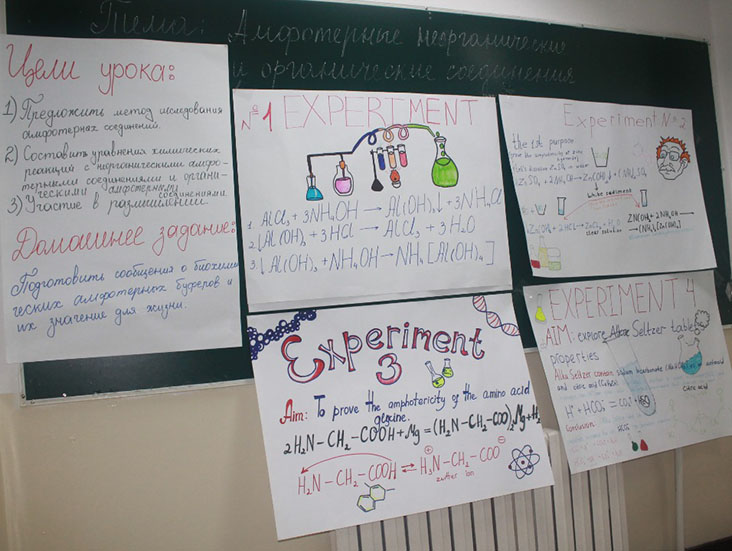 Тема: Амфотерные неорганические
и органические соединения
Цели урока:
1) Предложить метод исследования
амфотерных соединений.
2) Составить уравнения химических
реакций с неорганическими амфо-
терными соединениями и органи-
ческими амфотерными
соединениями.
3) Участие в размышлении.
Домашнее задание:
Подготовить сообщения о биохими
ческих амфотерных буферов и
их значение для жизни.
№1 EXPERIMENT
1. AlCl₃ + 3NH₄OH → Al(OH)₃↓ + 3NH₄Cl
2. ↓Al(OH)₃ + 3HCl → AlCl₃ + 3H₂O
3. ↓Al(OH)₃ + NH₄OH → NH₄[Al(OH)₄]
Experiment №2
the 1st purpose
white sediment
clear solution
Zn(OH)₂ + 2NH₄OH →
→ (NH₄)₂[Zn(OH)₄]
Experiment
3
Aim: To prove the amphotericity of the amino acid
glycine.
2H₂N–CH₂–COOH+Mg=(H₂N–CH₂–COO)₂Mg+H₂
H₂N–CH₂–COOH ⇌ H₃N⊕–CH₂–COO⊖
zwitter ion
EXPERIMENT 4
AIM: explore Alka Seltzer tablet
properties
Alka Seltzer contain sodium
and citric acid
citric acid
H⁺ + HCO₃⁻ = CO₂ + H₂O
Conclusion